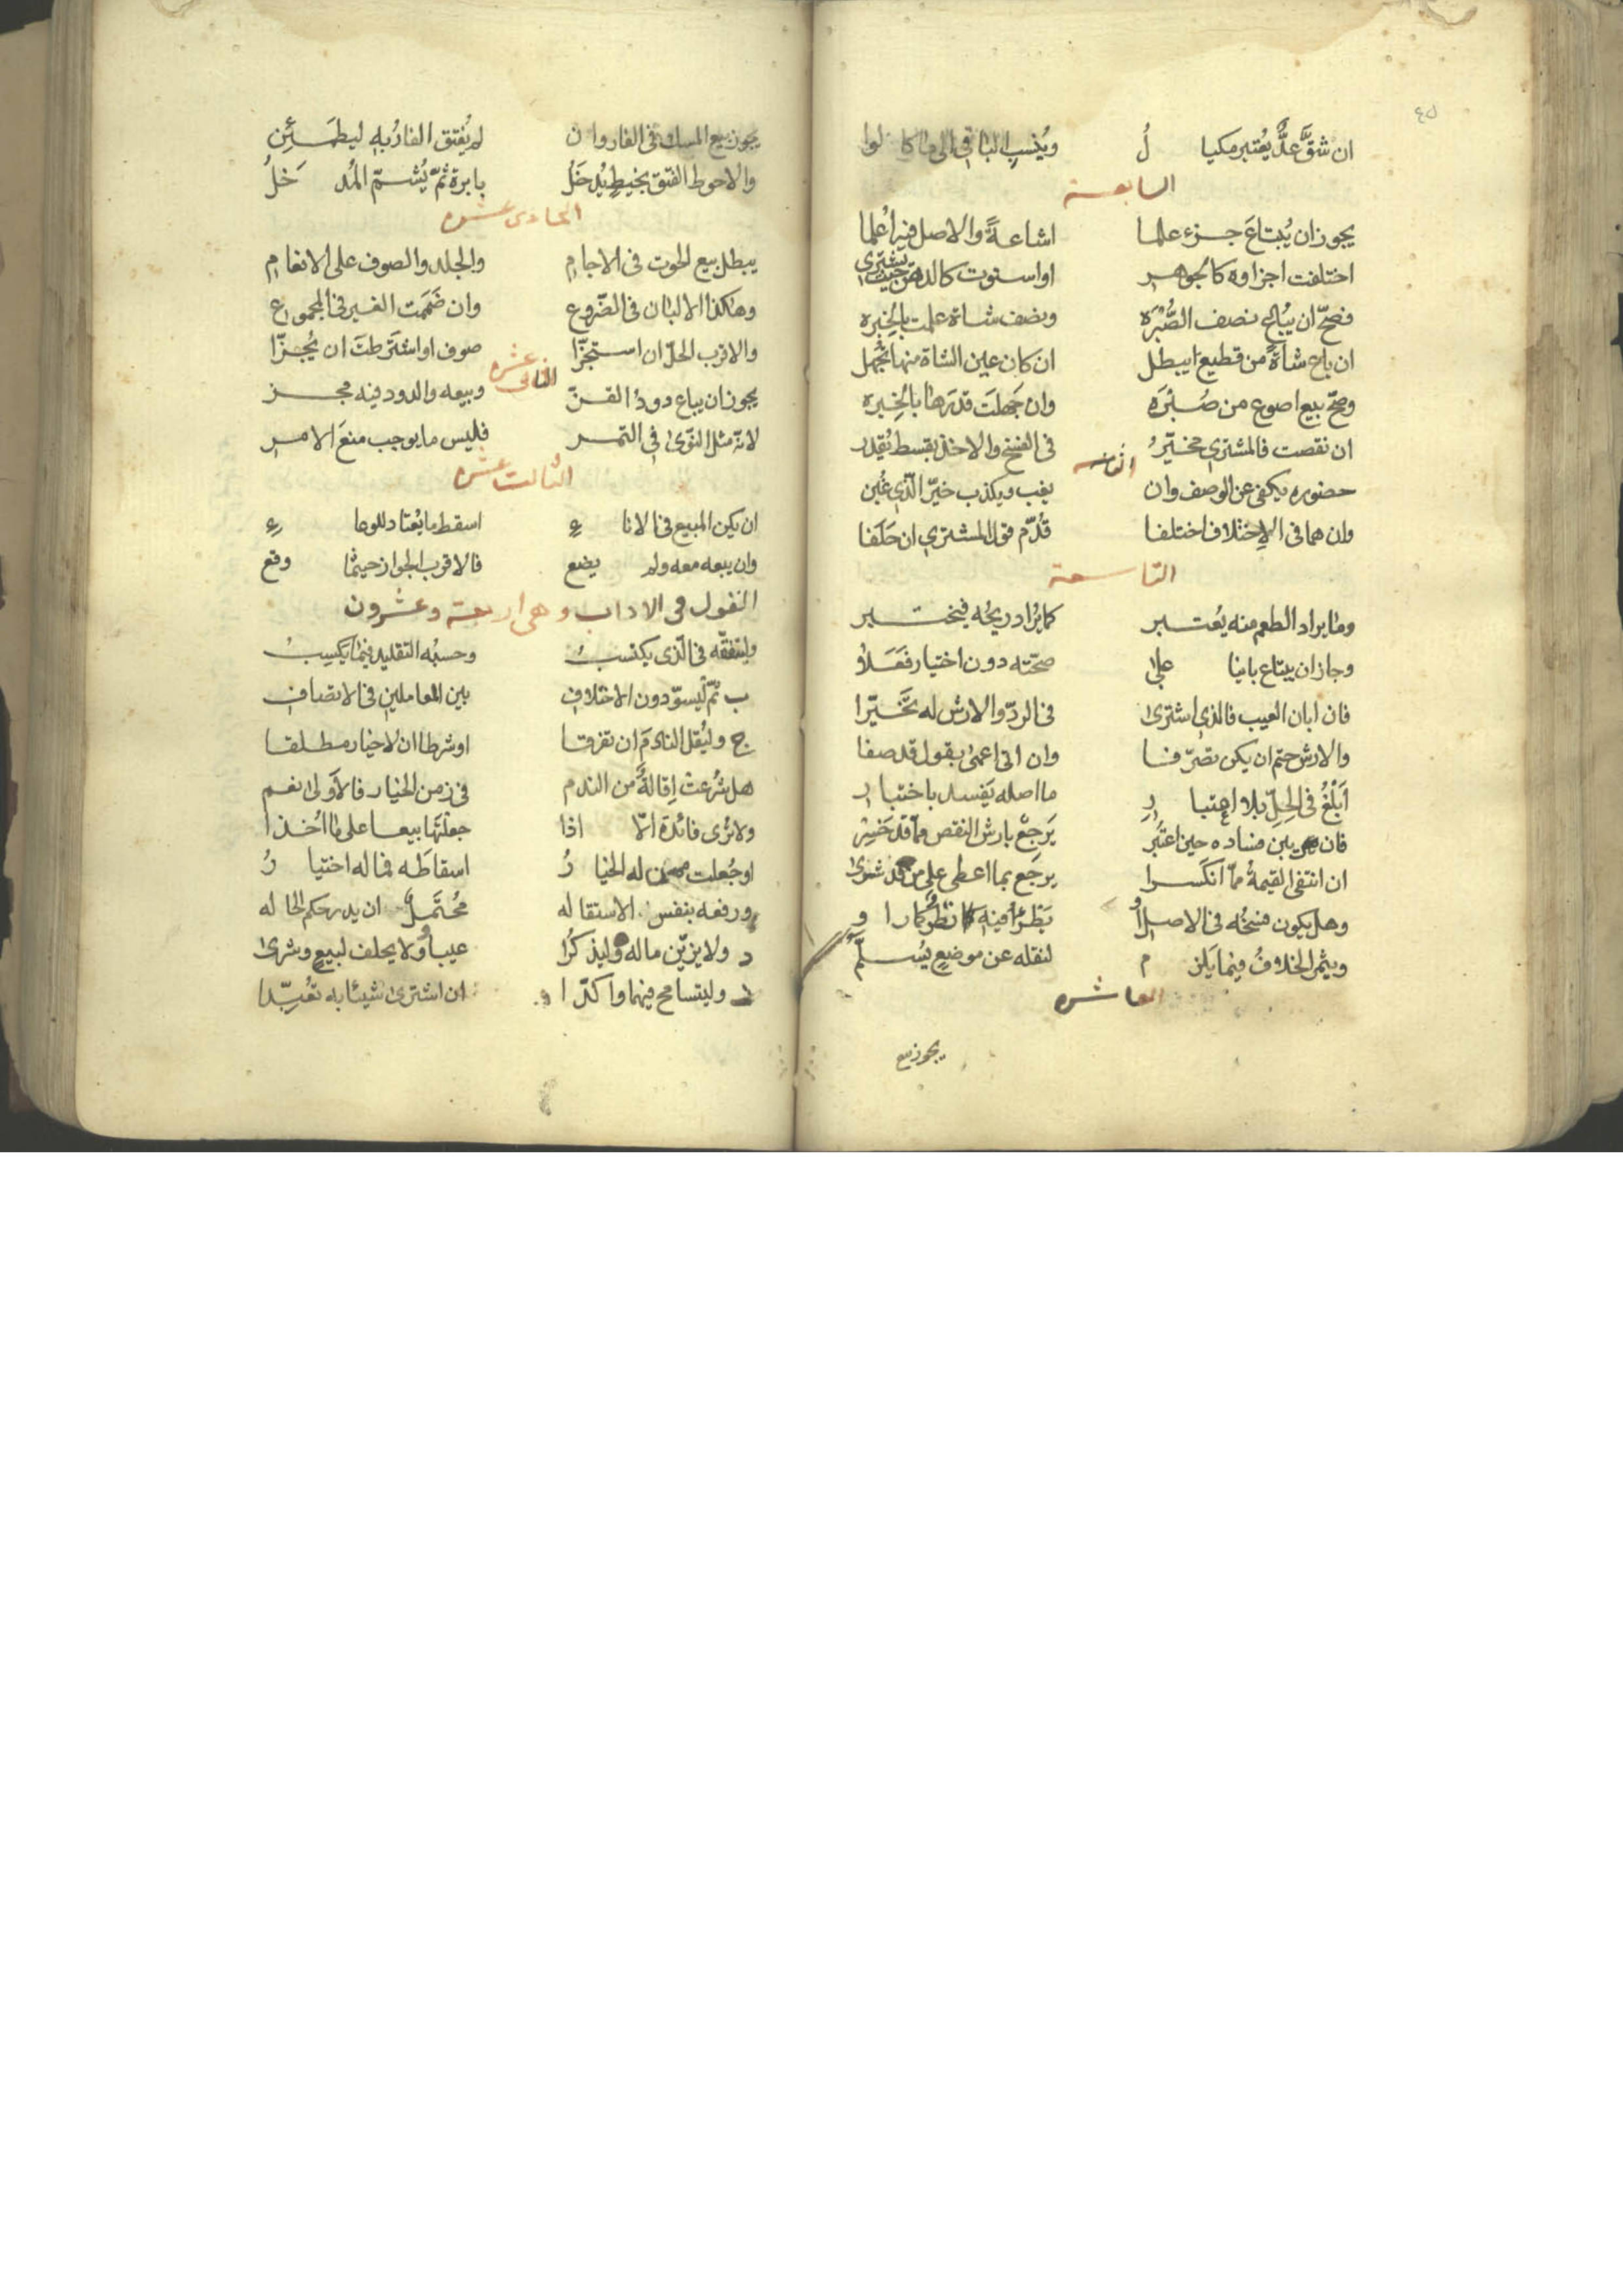 ان شقّ عدٌّ يُعتبر مكيا لُ ويُنسب الباقي الى ما كا لوا
السابعة
يجوز ان يُبتاعَ جزء علما اشاعةً والاصل فيه اُعلما
اختلفت اجزاوه كالجواهر او استوت كالدهن حيث يشترى
فصحّ ان يُباع نصف الصُّبْرَه ونصف شاة علمت بالخِبره
ان باع شاةً من قطيع ابيطل ان كان عين الشاة منها تُجهل
وصحّ بيع اصوع من صُبْرَه وان جَهلَت قدرَها بالخِبره
ان نقصت فالمشتري مخيّرُ في الفسخ والاخذ بقسط يُقدر
الثامنه
حضوره يكفي عن الوصف وان يغب ويكذب خيّر الّذي غُبن
وان هما في الاِختلاف اختلفا قُدّم قول المشتري ان حَلَفا
التاسعة
وما يراد الطعم منه يُعتبر كما يُراد ريحُه فيختبر
وجاز ان يبتاع بانيا على صحّته دون اختيار فَعَلا
فان ابان العيب فالذي اشترى في الردّ والارش له تَخَيّرا
والارش حتم ان يكن تصرّفا وان اتى اعمى بقول قد صفا
اَبْلَغُ في الحِلّ بلا اعتبا رِ ما اصله يَفسد باختبا ر
فان يبن فساده حين اعتَبَر يَرجعْ بارش النقص ممّا قد خَسِر
ان انتفى القيمةُ ممّا انكَسرا يرجَع بما اعطى على من قد شرى
وهل يكون فسخُه في الاصل اَو يَطْرَأُ فيه نظرٌ كما راوا
ويثمر الخلافُ فيما يَلز م لنقله عن موضعٍ يُسلّمُ
العاشره
يجوز بيع
يجوز بيع المسك في الفار وا ن لم يُفتق الفارُ به ليطمَئِن
والاحوط الفتق بخيطٍ يُدخَلُ بابرة ثمّ يُشمّ المُد خَلُ
الحادى عشره
يبطل بيع الحوت في الاجامِ والجلد والصوف على الانعامِ
وهكذا الالبان في الضّروع وان ضَممت الغير في المجموعِ
والاقرب الحلّ ان استجزّا صوف او اشترطتَ ان يُجزّا
الثانى عشره
يجوز ان يباع دودُ القزّ وبيعه والدود فيه مجز
لانّه مثل النّوى في التمر فليس ما يوجب منعَ الامر
الثالث عشره
ان يكن المبيع في الانا ءِ اسقط ما يُعتاد للوعا ءِ
وان يبعه معه ولم يضع فالاقرب الجواز حيثما وقع
القول فى الاداب وهى اربعة وعشرون
وليتفقّه في الّذي يكتسبُ وحسبُه التقليد فيما يكسِبُ
ب ثمّ ليسوّ دون الاختلافِ بين المعاملين في الانصافِ
ج وليُقل النادمَ ان تفرقا او شرطا ان لا خيار مطلقا
هل شُرعتْ اِقالةٌ من الندم في زمن الخيار فالاَولى نعم
ولا نرى فائدة الّا اذا جعلتَها بيعا على ما اُخذا
او جُعلت ممن له الخيا رُ اسقاطَه فما له اختيا رُ
ورفعه بنفس الاستقاله مُحتَملٌ ان يدر حكم الحاله
د ولا يزيّن ماله وليذكرُا عيبا ولا يحلف لبيعٍ وشرى
وليتسامح فيهما واكدّ ا ان اشترى شيئا به تعُبّدا